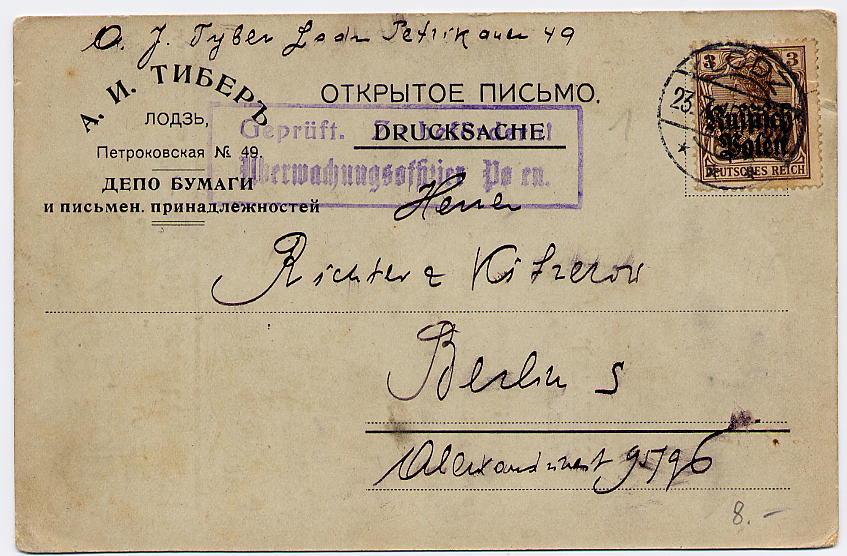 A. J. Tyber Lodz Petrikauer 49
А. И. ТИБЕРЪ
ЛОДЗЬ,
Петроковская № 49.
ДЕПО БУМАГИ
и письмен. принадлежностей
ОТКРЫТОЕ ПИСЬМО.
DRUCKSACHE
Geprüft. Zu befördern!
Überwachungsoffizier Posen.
3 3
Russisch-
Polen
DEUTSCHES REICH
23.
1
Herren
Richter & Kitzerow
Berlin S
Alexandrinest 95/96
8.-